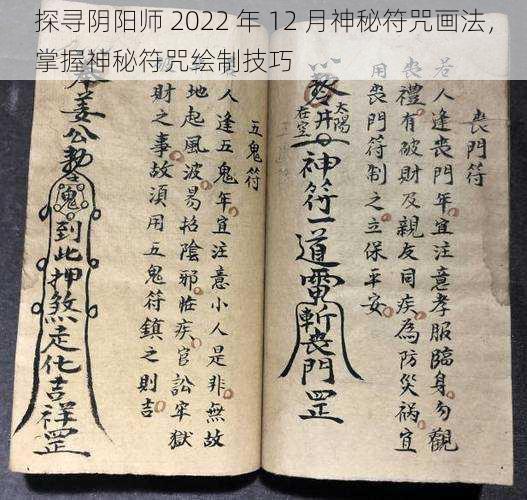 探寻阴阳师 2022 年 12 月神秘符咒画法，
掌握神秘符咒绘制技巧
喪門符
若人逢喪門年宜注意孝服臨身勿觀
喪禮有破財及親友同疾為防災禍宜
用喪門符制之立保平安
太陽
在空
神符一道雷斬喪門罡
五鬼符
人逢五鬼年宜注意小人是非無故
地起風波易招陰邪臨疾官訟牢獄
財之事故須用五鬼符鎮之則吉
奉姜公勅
鬼到此押煞走化吉祥罡